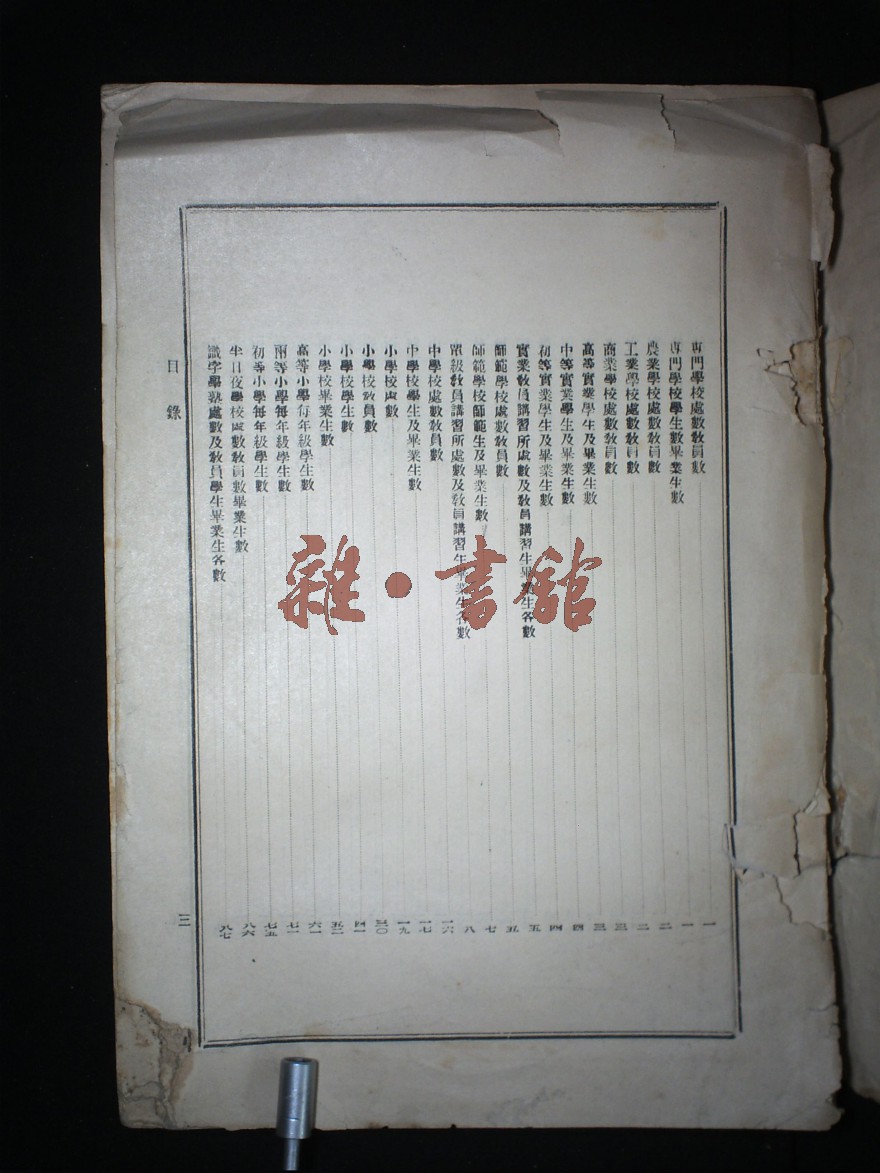 專門學校處數教員數 一
專門學校學生數畢業生數 一
農業學校處數教員數 二
工業學校處數教員數 二
商業學校處數教員數 三
高等實業學生及畢業生數 三
中等實業學生及畢業生數 四
初等實業學生及畢業生數 四
實業教員講習所處數及教員講習生畢業生各數 五
師範學校處數教員數 五
師範學校師範生及畢業生數 七
單級教員講習所處數及教員講習生畢業生各數 八
中學校處數教員數 一六
中學校學生及畢業生數 一七
小學校處數 一九
小學校教員數 三〇
小學校學生數 四一
小學校畢業生數 五二
高等小學每年級學生數 六一
兩等小學每年級學生數 七一
初等小學每年級學生數 七五
半日夜學校處數教員數畢業生數 八六
識字學塾處數及教員學生畢業生各數 八七
目錄
三
雜·書館